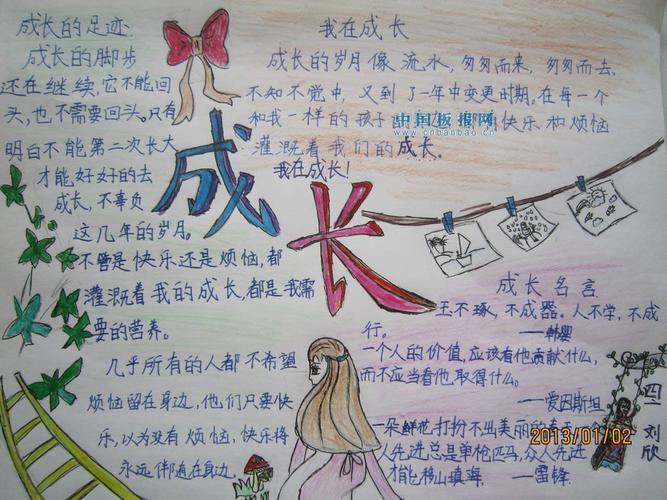 成长的足迹
成长的脚步
还在继续,它不能回
头,也不需要回头。只有
明白不能第二次长大
才能好好的去
成长,不辜负
这几年的岁月。
不管是快乐还是烦恼,都
灌溉着我的成长,都是我需
要的营养。
几乎所有的人都不希望
烦恼留在身边,他们只要快
乐,以为没有烦恼,快乐将
永远伴随在身边。
成长
我在成长
成长的岁月像流水,匆匆而来,匆匆而去.
不知不觉中,又到了一年中变更时期,在每一个
和我一样的孩子 快乐和烦恼
灌溉着我们的成长。
我在成长!
中国板报网
www.cnbanbao.cn
成长名言
王不琢,不成器。人不学,不成
行。
——韩婴
一个人的价值,应该看他贡献什么,
而不应当看他取得什么。
——爱因斯坦
一朵鲜花打扮不出美丽的春天
人先进总是单枪匹马,众人先进
才能移山填海。——雷锋
四一刘欣
2013/01/02